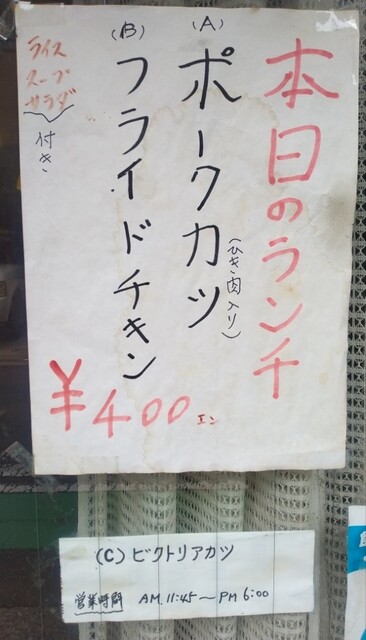 本日のランチ
(A)
ポークカツ
(ひき肉入り)
(B)
フライドチキン
ライス
スープ
サラダ
付き
¥400エン
(C)ビクトリアカツ
営業時間 AM.11:45〜PM6:00